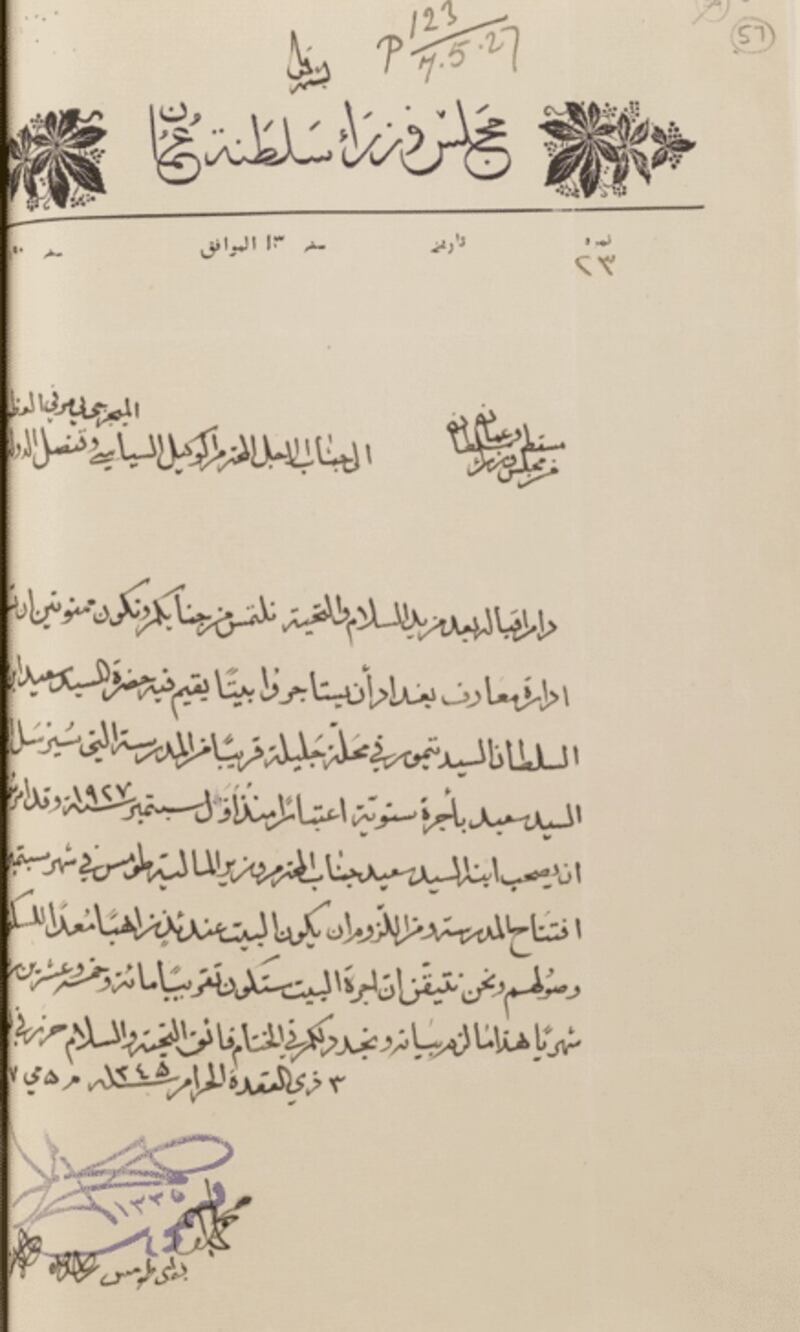 57
P 123
7.5.27
مجلس وزراء سلطنة عمان
نمره تاريخ سنه ١٣ الموافق سنه
٢٣
الميجر جي بي مرفي
من مجلس وزراء سلطان مسقط وعمان
الى جناب الاجل المحترم الوكيل السياسي وقنصل الدولة
دام اقباله بعد مزيد السلام والتحية نلتمس من جنابكم ونكون ممنونين ان
ادارة معارف بغداد أن يستاجروا بيتًا يقيم فيه حضرة السيد سعيد ابن
السلطان السيد تيمور في محلّة جليلة قريبًا من المدرسة التي سيرسل
السيد سعيد بأجرة سنويّة اعتبارًا منذ أوّل سبتمبر سنة ١٩٢٧ وقد امر
ان يصحب ابنه السيد سعيد جناب المحترم وزير المالية طومس في شهر سبتمبر
افتتاح المدرسة ومن اللزوم ان يكون البيت عندئذ زاهبًا مُعدًا للسكنى
وصولهم ونحن نتيقّن انّ اجرة البيت ستكون تقريبًا مائة وخمسة وعشرين
شهريًا هذا ما لزم بيانه ونجدد لكم في الختام فائق التحية والسلام حرر في
٣ ذي القعدة الحرام سنة ١٣٤٥ م ٥ مي
١٣٣٥
طومس